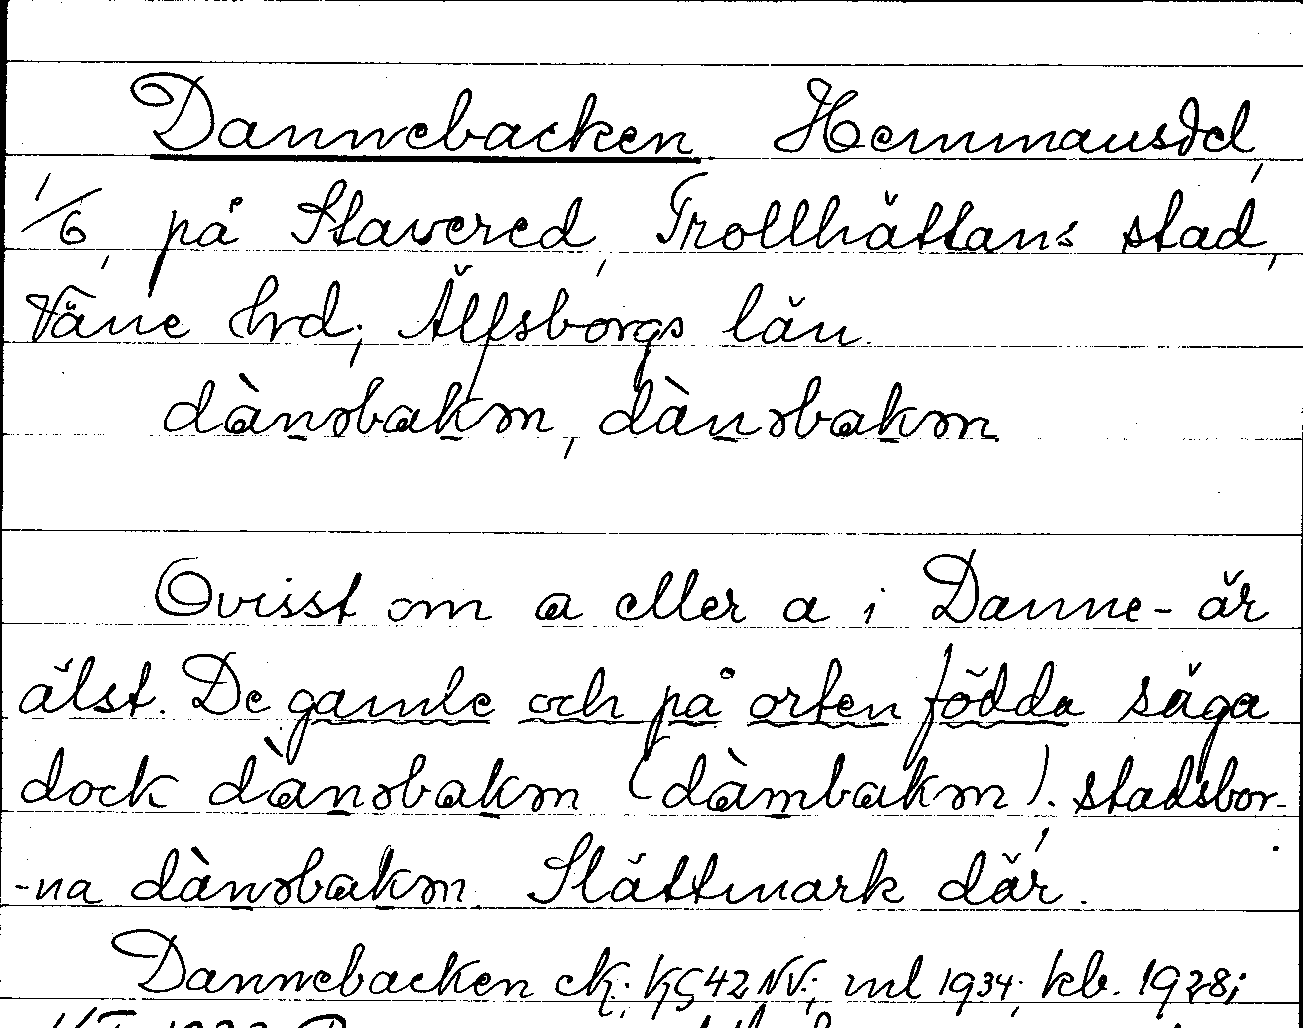 Dannebacken Hemmansdel,
1/6, på Stavered, Trollhättans stad,
Väne hrd; Älfsborgs län.
dànəbakən, dànəbakən
Ovisst om a eller a i Danne- är
älst. De gamle och på orten födda säga
dock dànəbakən (dàmbakən); stadsbor-
-na dànəbakən. Slättmark där.
Dannebacken ek. KS 42 NV; ml 1934; kb. 1928;